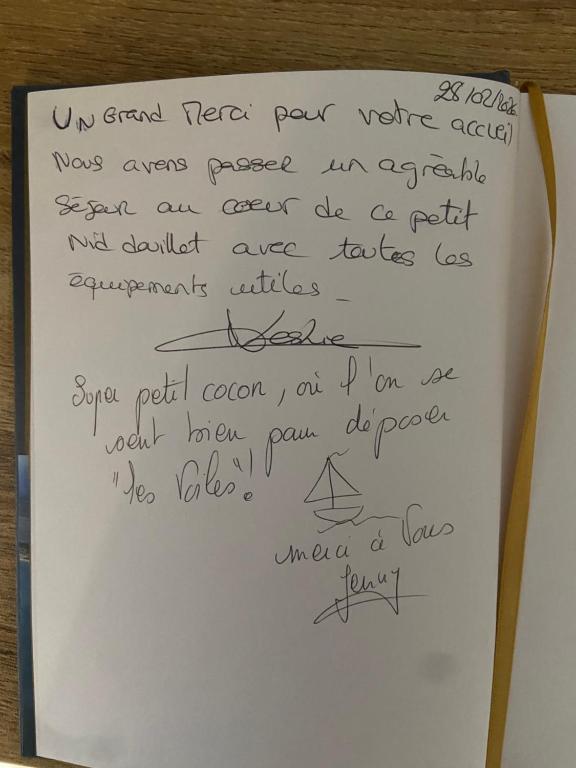 28/02/2026
Un Grand Merci pour votre accueil
Nous avons passer un agréable
Séjour au coeur de ce petit
Nid douillet avec toutes les
équipements utiles _
Leslie
Super petit cocon, où l'on se
sent bien pour déposer
"les Voiles"!
merci à Vous
Jenny